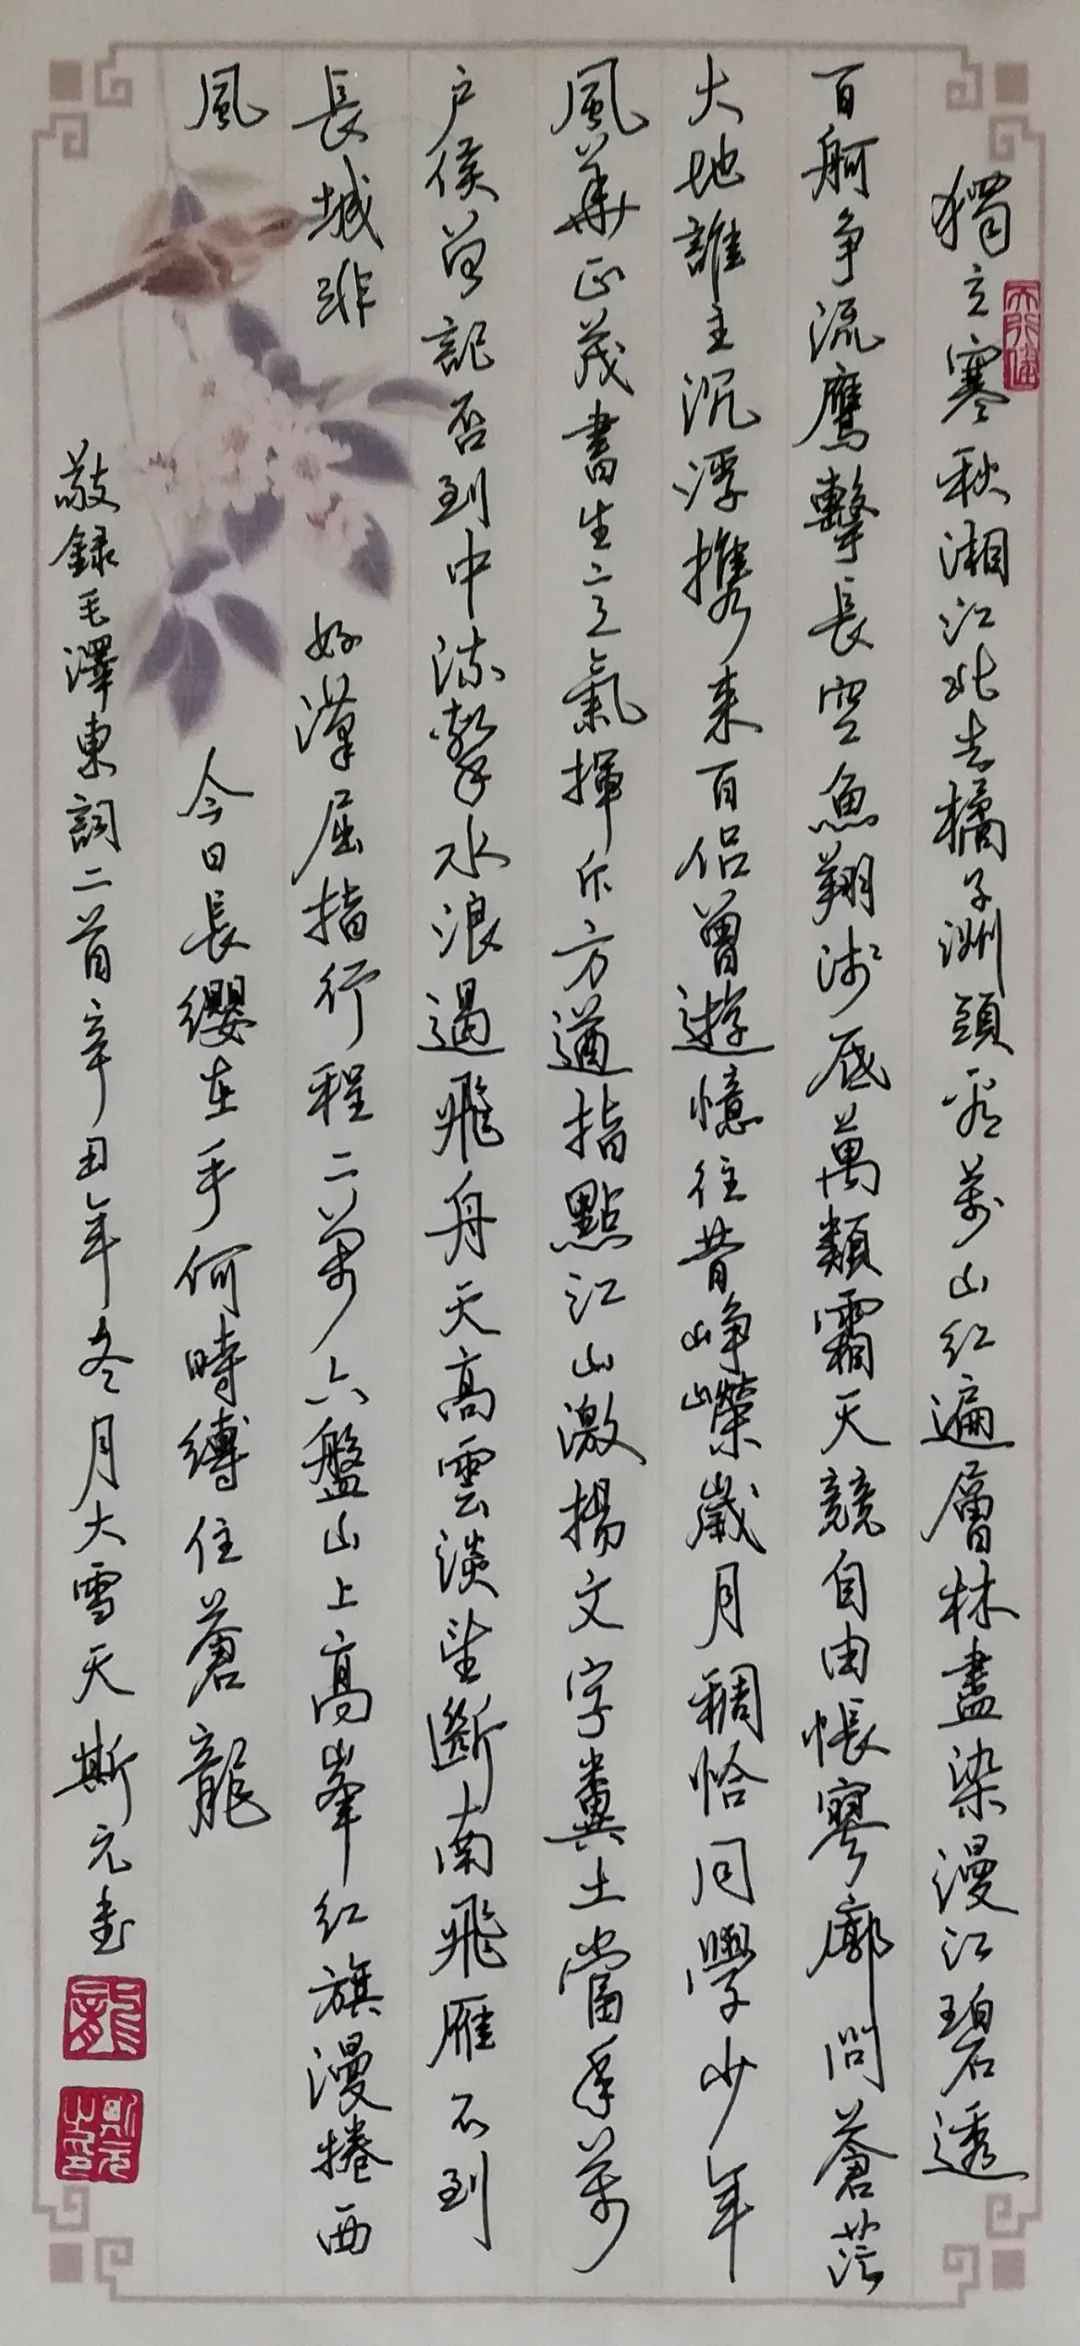 獨立寒秋湘江北去橘子洲頭看萬山紅遍層林盡染漫江碧透
百舸爭流鷹擊長空魚翔淺底萬類霜天競自由悵寥廓問蒼茫
大地誰主沉浮攜來百侣曾遊憶往昔崢嶸歲月稠恰同學少年
風華正茂書生意氣揮斥方遒指點江山激揚文字糞土當年萬
户侯曾記否到中流擊水浪遏飛舟天高雲淡望斷南飛雁不到
長城非好漢屈指行程二萬六盤山上高峯紅旗漫捲西
風今日長纓在手何時縛住蒼龍
敬録毛澤東詞二首辛丑年冬月大雪天斯元書